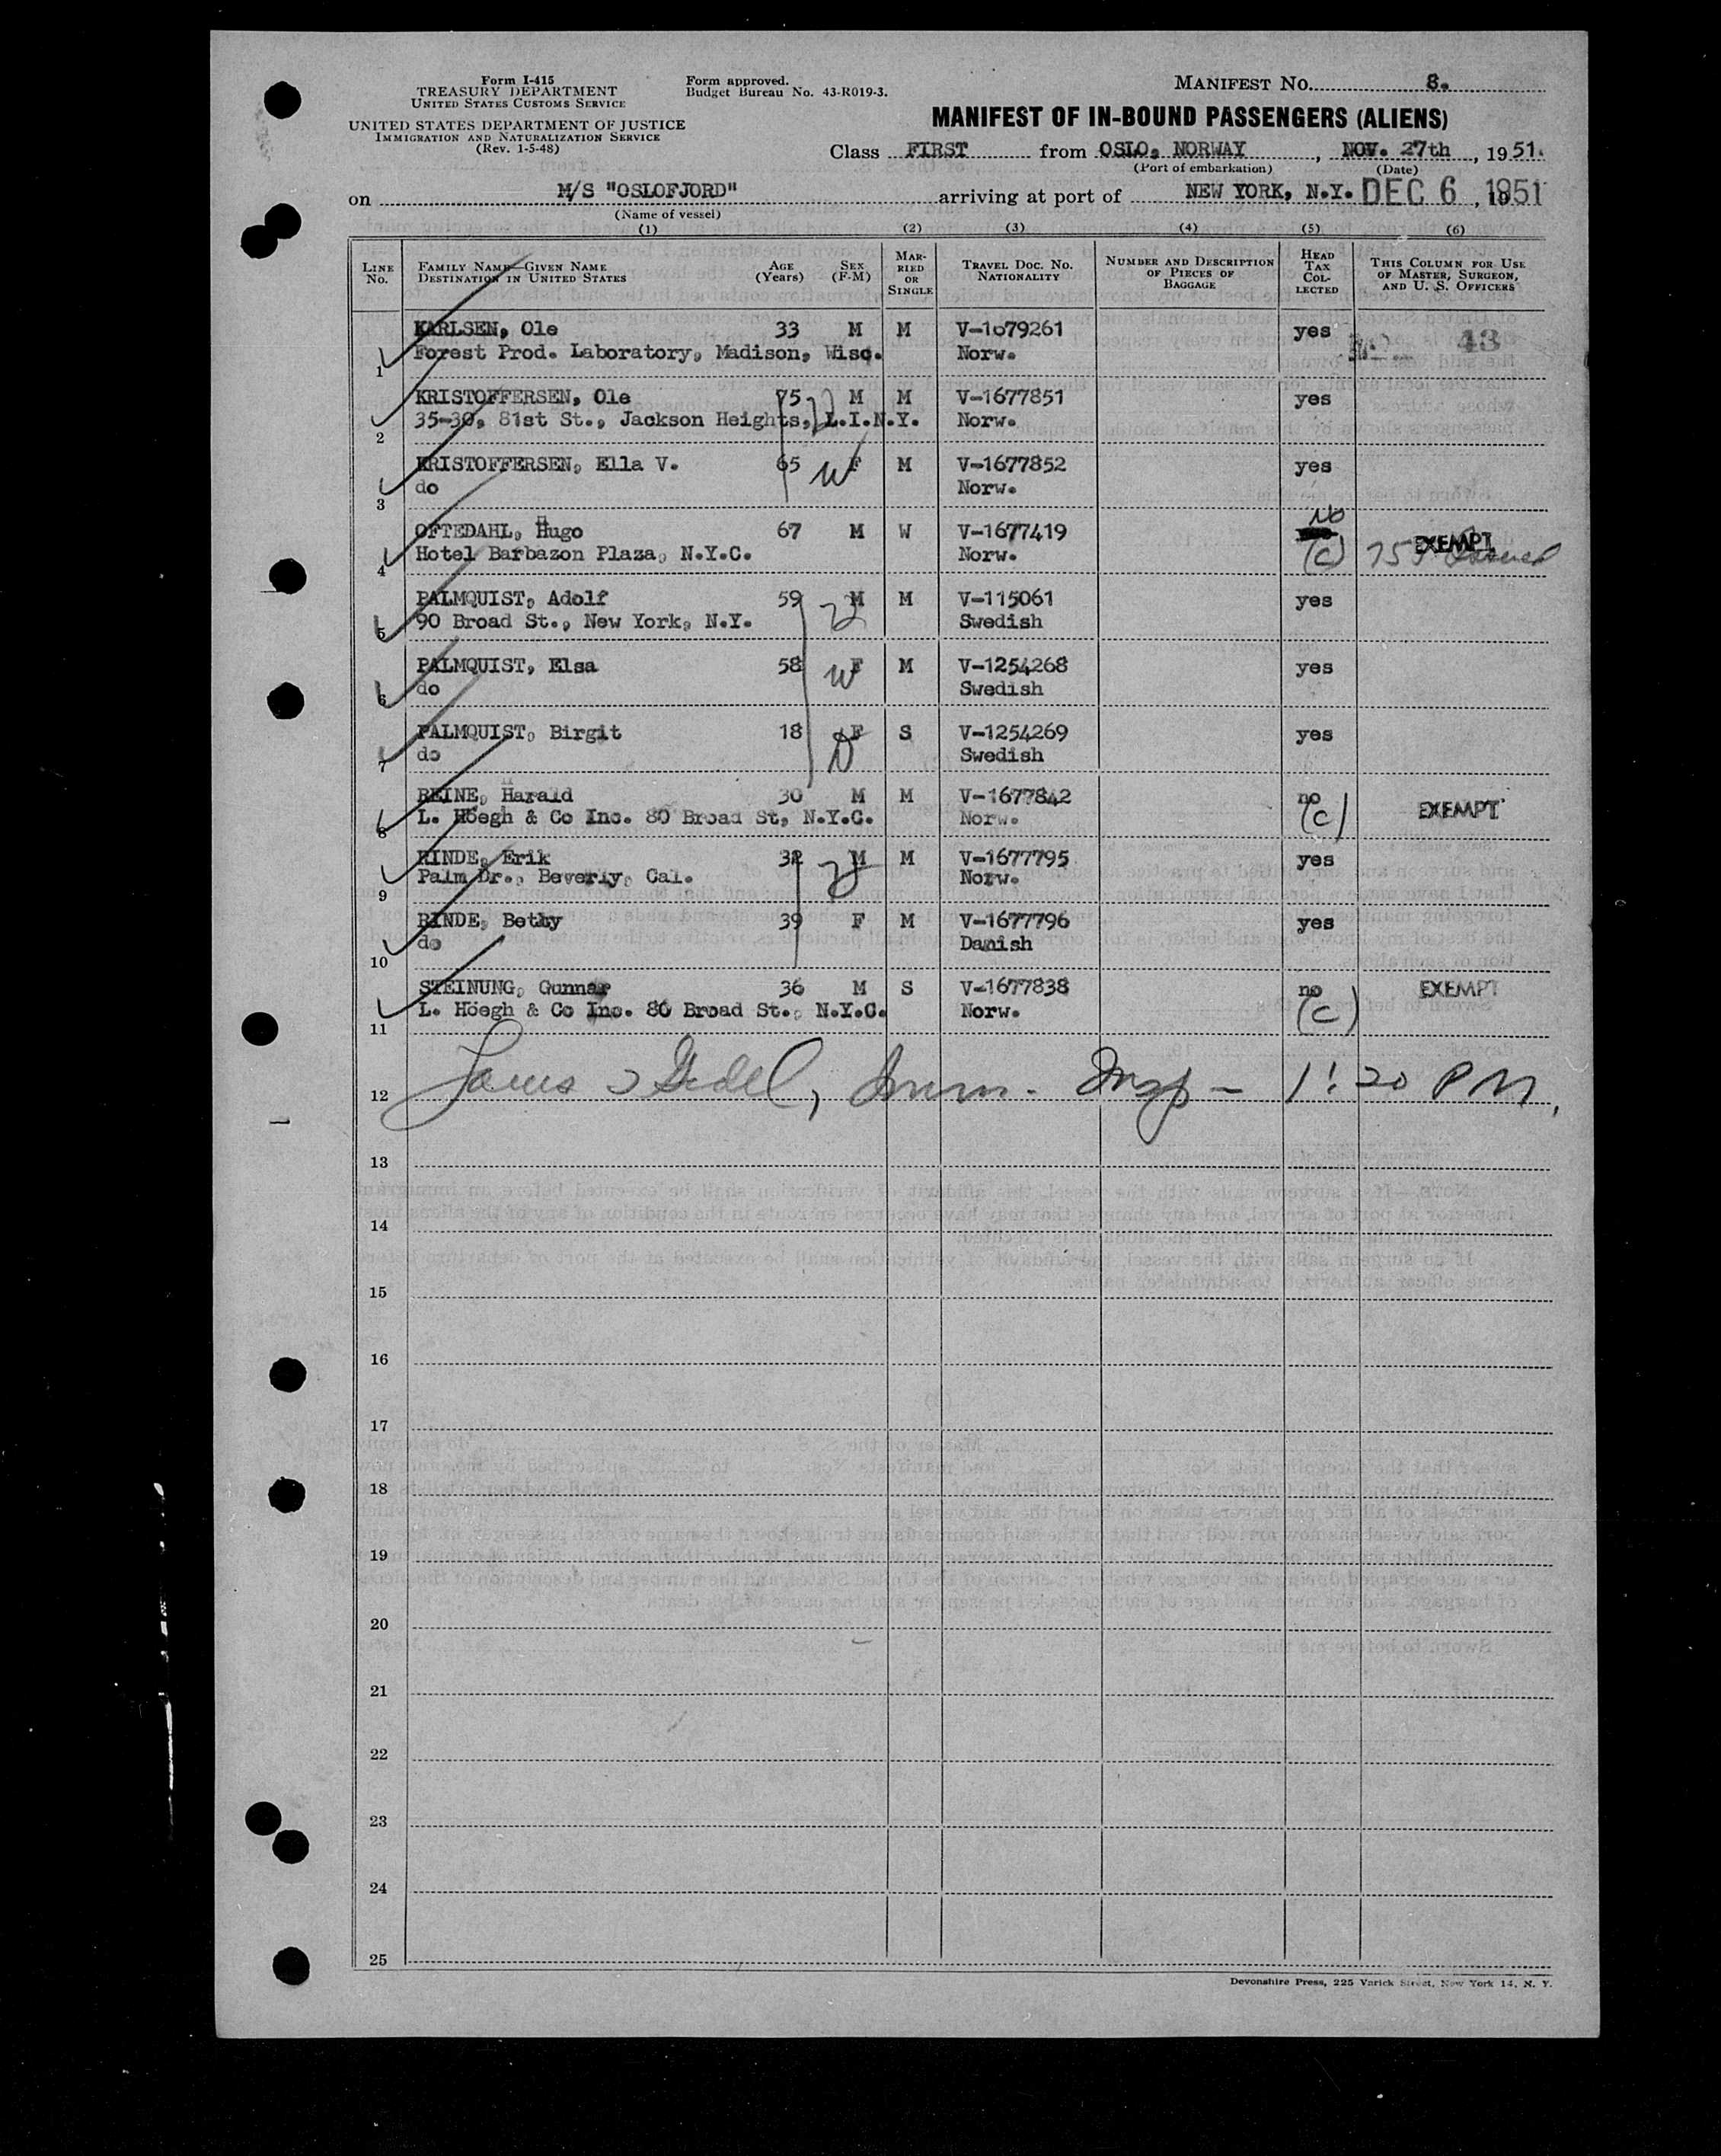 Form I-415
TREASURY DEPARTMENT
UNITED STATES CUSTOMS SERVICE
UNITED STATES DEPARTMENT OF JUSTICE
IMMIGRATION AND NATURALIZATION SERVICE
(Rev. 1-5-48)
Form approved.
Budget Bureau No. 43-R019-3.
MANIFEST NO. 8.
MANIFEST OF IN-BOUND PASSENGERS (ALIENS)
Class FIRST from OSLO, NORWAY, NOV. 27th, 1951.
(Port of embarkation) (Date)
on M/S "OSLOFJORD" arriving at port of NEW YORK, N.Y. DEC 6, 1951
(Name of vessel)
(1) (2) (3) (4) (5) (6)
LINE NO. FAMILY NAME—GIVEN NAME DESTINATION IN UNITED STATES AGE (YEARS) SEX (F-M) MARRIED OR SINGLE TRAVEL DOC. NO. NATIONALITY NUMBER AND DESCRIPTION OF PIECES OF BAGGAGE HEAD TAX COLLECTED THIS COLUMN FOR USE OF MASTER, SURGEON, AND U. S. OFFICERS
KARLSEN, Ole 33 M M V-1079261 yes 43
1 Forest Prod. Laboratory, Madison, Wisc. Norw.
KRISTOFFERSEN, Ole 75 M M V-1677851 yes
2 35-30, 81st St., Jackson Heights, L.I.N.Y. Norw.
KRISTOFFERSEN, Ella V. 65 W F M V-1677852 yes
3 do Norw.
OFTEDAHL, Hugo 67 M W V-1677419 No EXEMPT
4 Hotel Barbazon Plaza, N.Y.C. Norw. (C) 757 Issued
PALMQUIST, Adolf 59 M M V-115061 yes
5 90 Broad St., New York, N.Y. Swedish
PALMQUIST, Elsa 58 W F M V-1254268 yes
6 do Swedish
PALMQUIST, Birgit 18 D F S V-1254269 yes
7 do Swedish
REINE, Harald 30 M M V-1677842 no EXEMPT
8 L. Höegh & Co Inc. 80 Broad St, N.Y.C. Norw. (C)
RINDE, Erik M M V-1677795 yes
9 Palm Dr., Beverly, Cal. Norw.
RINDE, Bethy 39 F M V-1677796 yes
10 do Danish
STEINUNG, Gunnar 36 M S V-1677838 no EXEMPT
11 L. Höegh & Co Inc. 80 Broad St., N.Y.C. Norw. (C)
12 Imm. Insp - 1:20 PM.
13
14
15
16
17
18
19
20
21
22
23
24
25
Devonshire Press, 225 Varick Street, New York 14, N. Y.